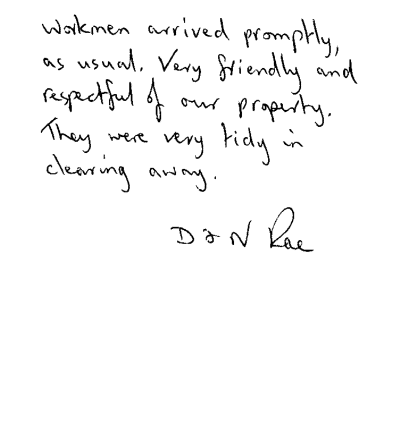 Workmen arrived promptly,
as usual. Very friendly and
respectful of our property.
They were very tidy in
clearing away.
D & N Rae